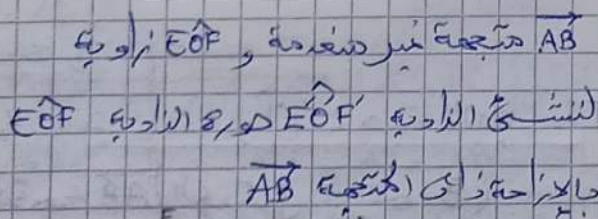 $\overrightarrow{AB}$ متجهة غير منعدمة و $\widehat{EOF}$ زاوية
لننشئ الزاوية $\widehat{E'O'F'}$ صورة الزاوية $\widehat{EOF}$
بالإزاحة ذات المتجهة $\overrightarrow{AB}$